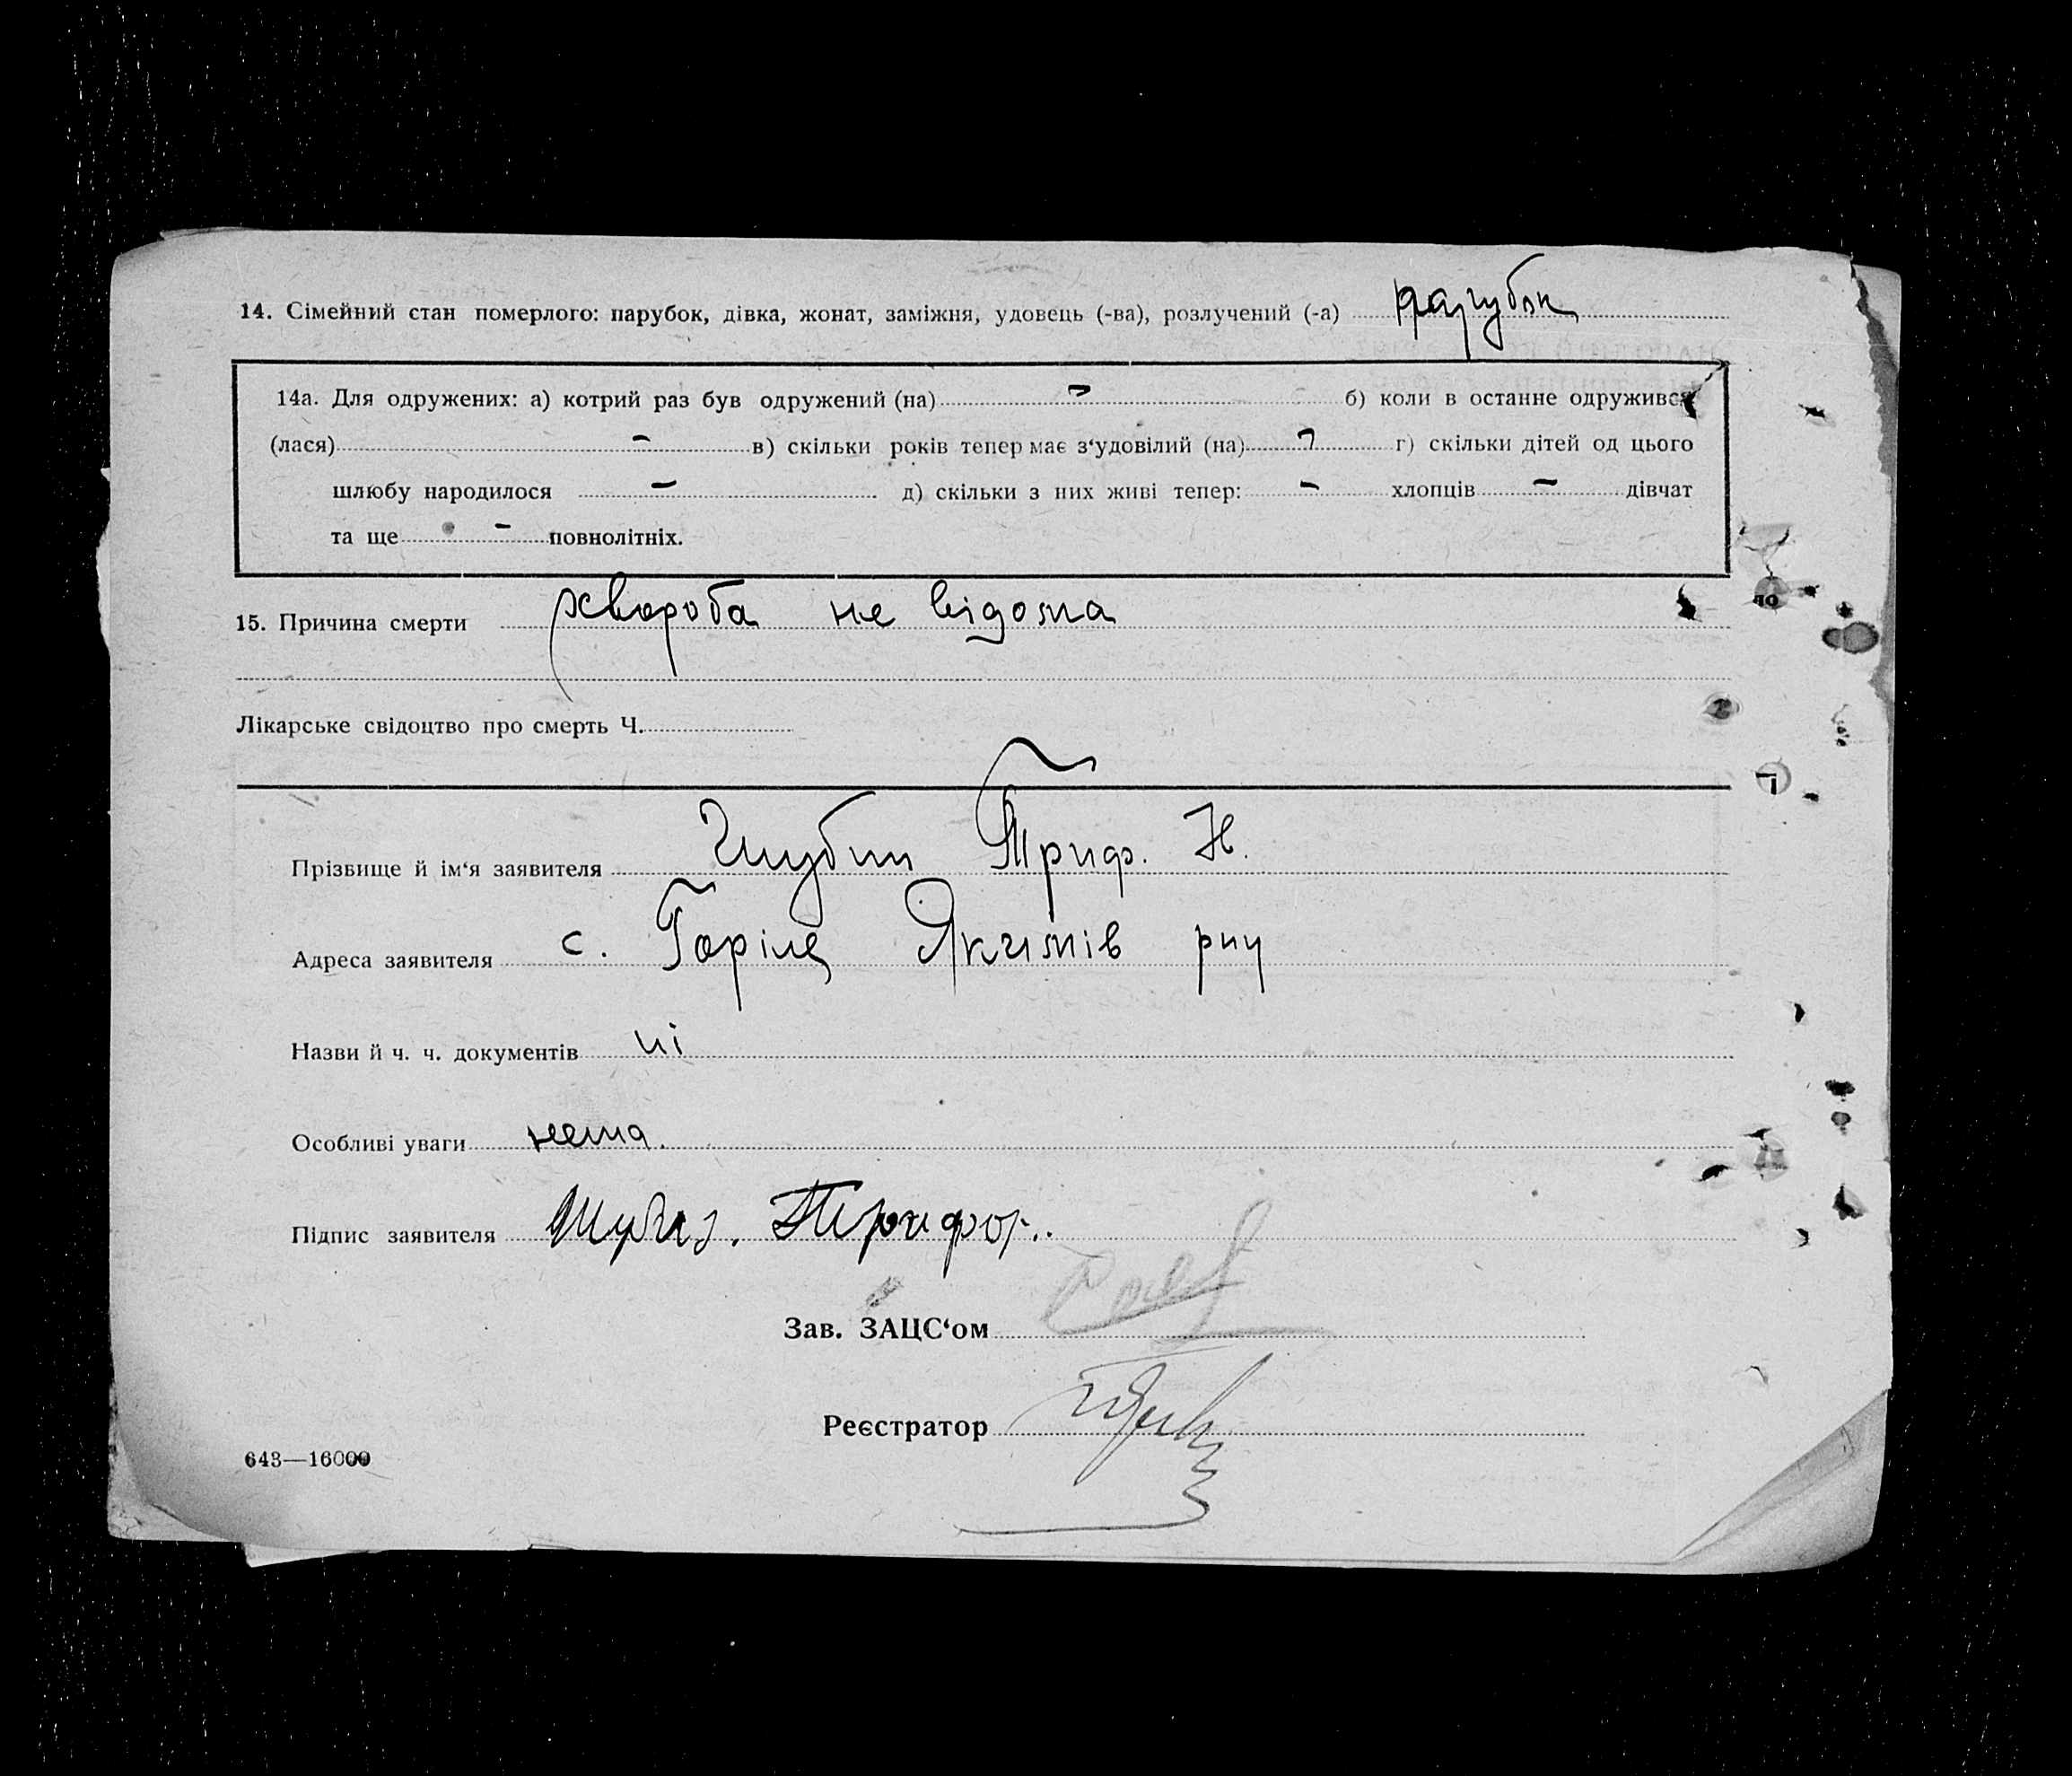 14. Сімейний стан померлого: парубок, дівка, жонат, заміжня, удовець (-ва), розлучений (-а) парубок
14а. Для одружених: а) котрий раз був одружений (на) - б) коли в останне одружився
(лася) - в) скільки років тепер має з‘удовілий (на) - г) скільки дітей од цього
шлюбу народилося - д) скільки з них живі тепер: - хлопців - дівчат
та ще - повнолітніх.
15. Причина смерти хвороба не відома
Лікарське свідоцтво про смерть Ч.
Прізвище й ім‘я заявителя Триф. Н.
Адреса заявителя с. Якимів
Назви й ч. ч. документів ні
Особливі уваги нема.
Підпис заявителя
Зав. ЗАЦС‘ом
Реєстратор
643—16000